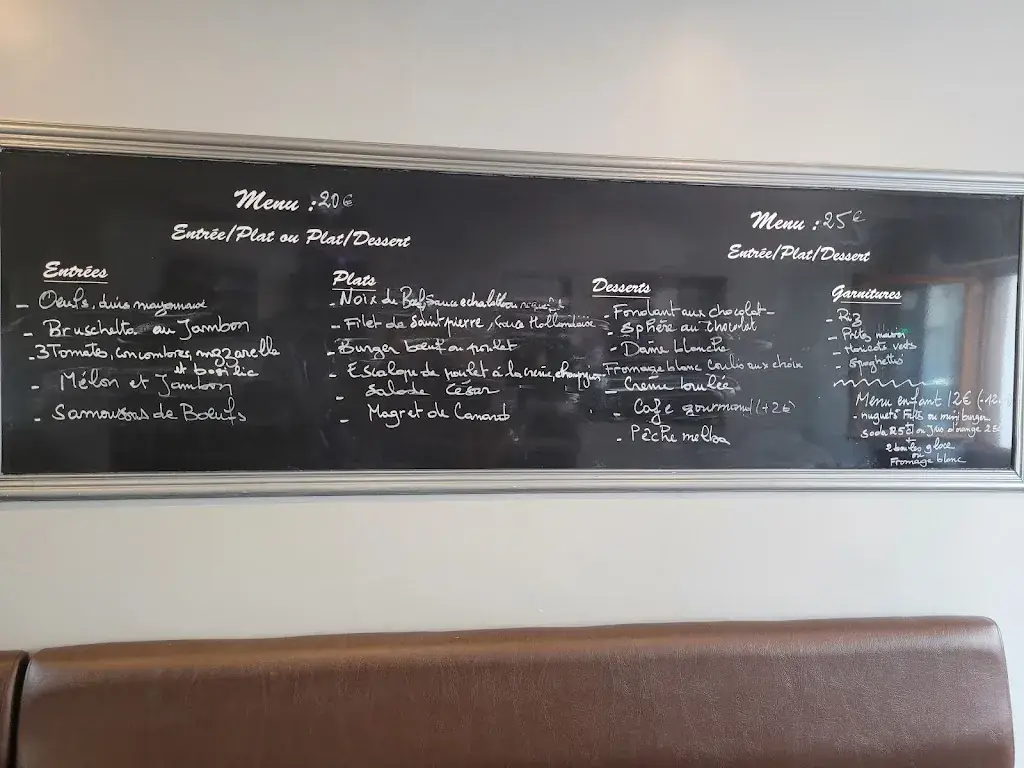 Menu : 20€
Entrée/Plat ou Plat/Dessert
Entrées
- Oeufs durs mayonnaise
- Bruschetta au Jambon
- 3 Tomates, concombres, mozzarella
et basilic
- Mélon et Jambon
- Samoussas de Boeufs
Plats
- Noix de Boeuf sauce echalotte ou roquefort
- Filet de Saint pierre, sauce Hollandaise
- Burger boeuf ou poulet
- Escalope de poulet à la crème, champignons
- Salade César
- Magret de Canard
Menu : 25€
Entrée/Plat/Dessert
Desserts
- Fondant aux chocolat
- Sphère au chocolat
- Dame blanche
Fromage blanc coulis aux choix
- Creme brulée
- Café gourmand (+2€)
- Pèche melba
Garnitures
- Riz
- Frites
- Haricots verts
- Spaghettis
Menu enfant 12€ (-12
- nuguets Frites ou mini burger
soda 25cl ou Jus d'orange 25cl
+
2 boules glace
ou
Fromage blanc